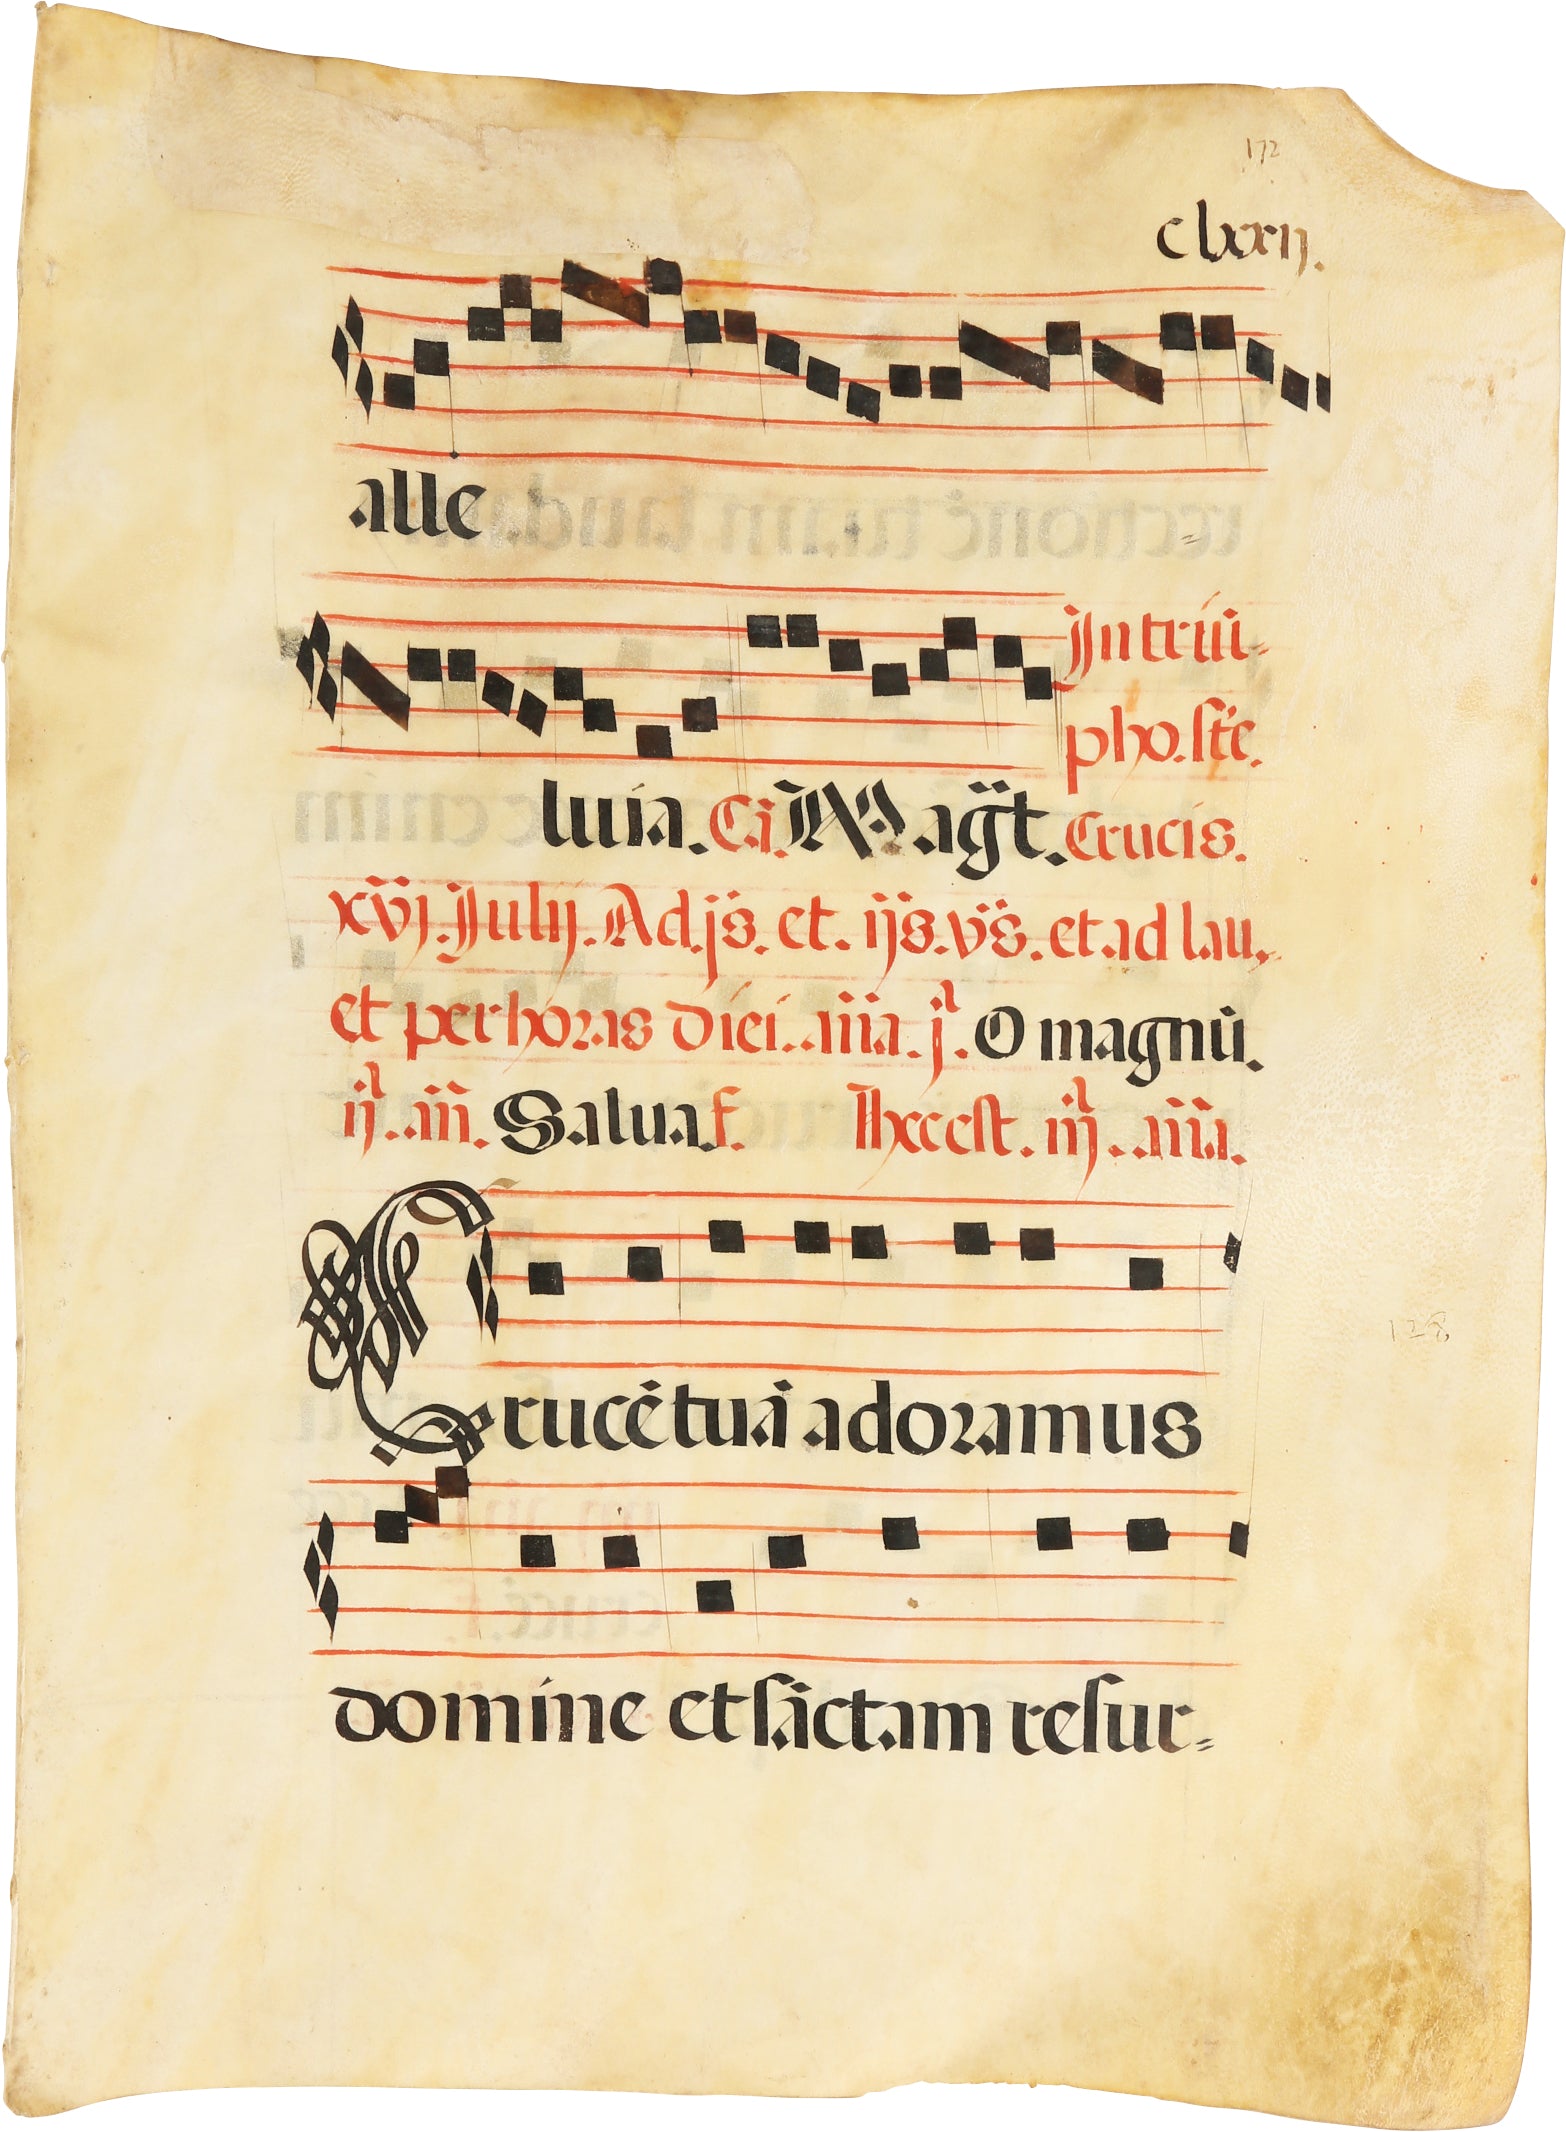 172
clxxij.
alle
In triū-
pho. scte.
luia. Ca. Magt. Crucis.
xvj. Julij. Ad. js. et. ijs. vs. et ad lau,
et per horas diei. .aña. j. O magnū.
ij. .añ. Salua f. Hec est. iij. .aña.
Crucē tuā adoramus
128
domine et sāctam resur-